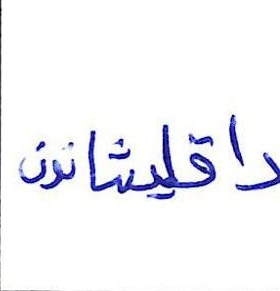 داقليشانون